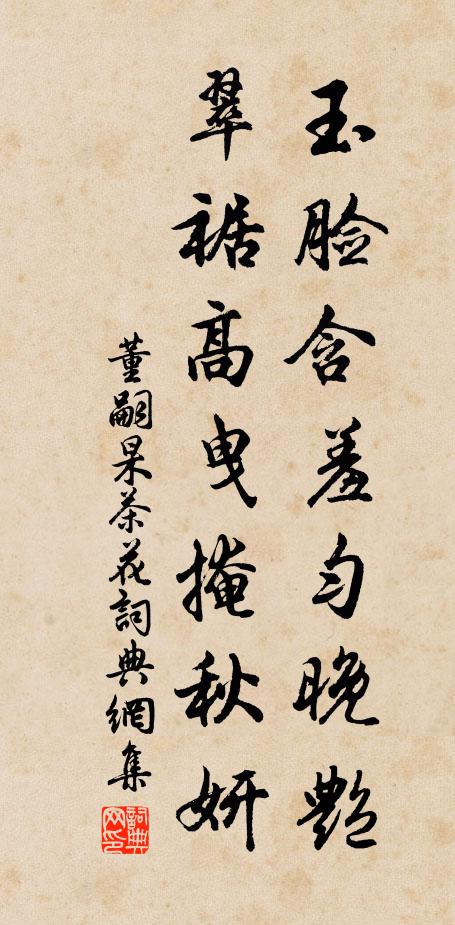 玉脸含羞匀晚艳
翠裾高曳掩秋妍
董嗣杲茶花詞典網集
詞典网印